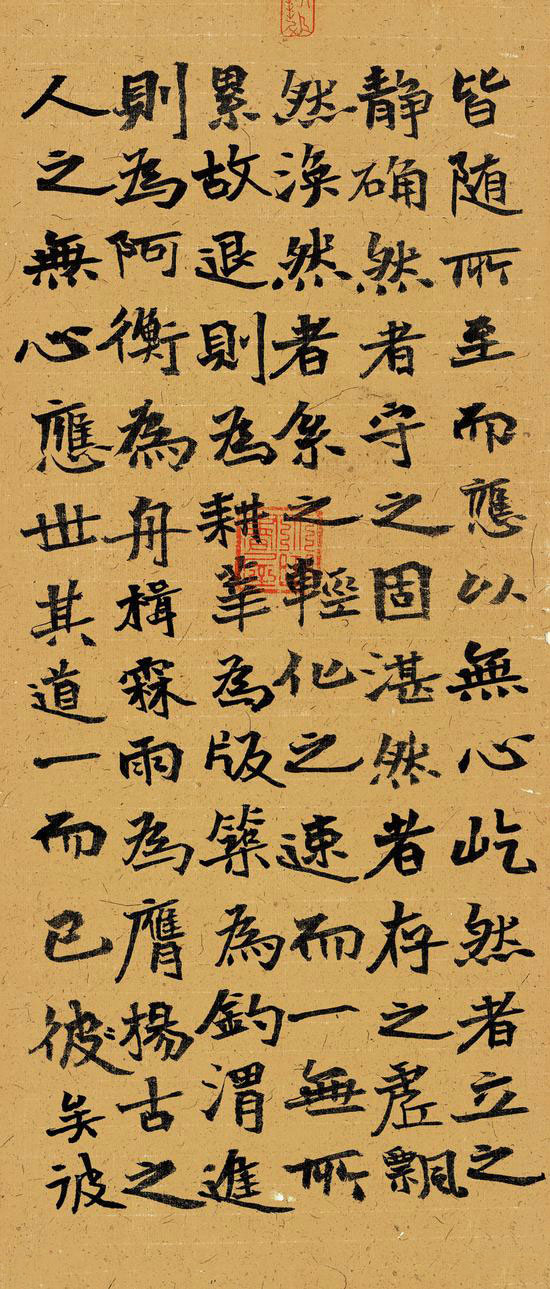 皆随所至而應以無心屹然者立之
静确然者守之固湛然者存之虛飄
然渙然者系之輕化之速而一無所
累故退則為耕莘為版築為釣渭進
則為阿衡為舟楫霖雨為膺揚古之
人之無心應世其道一而已彼矣彼